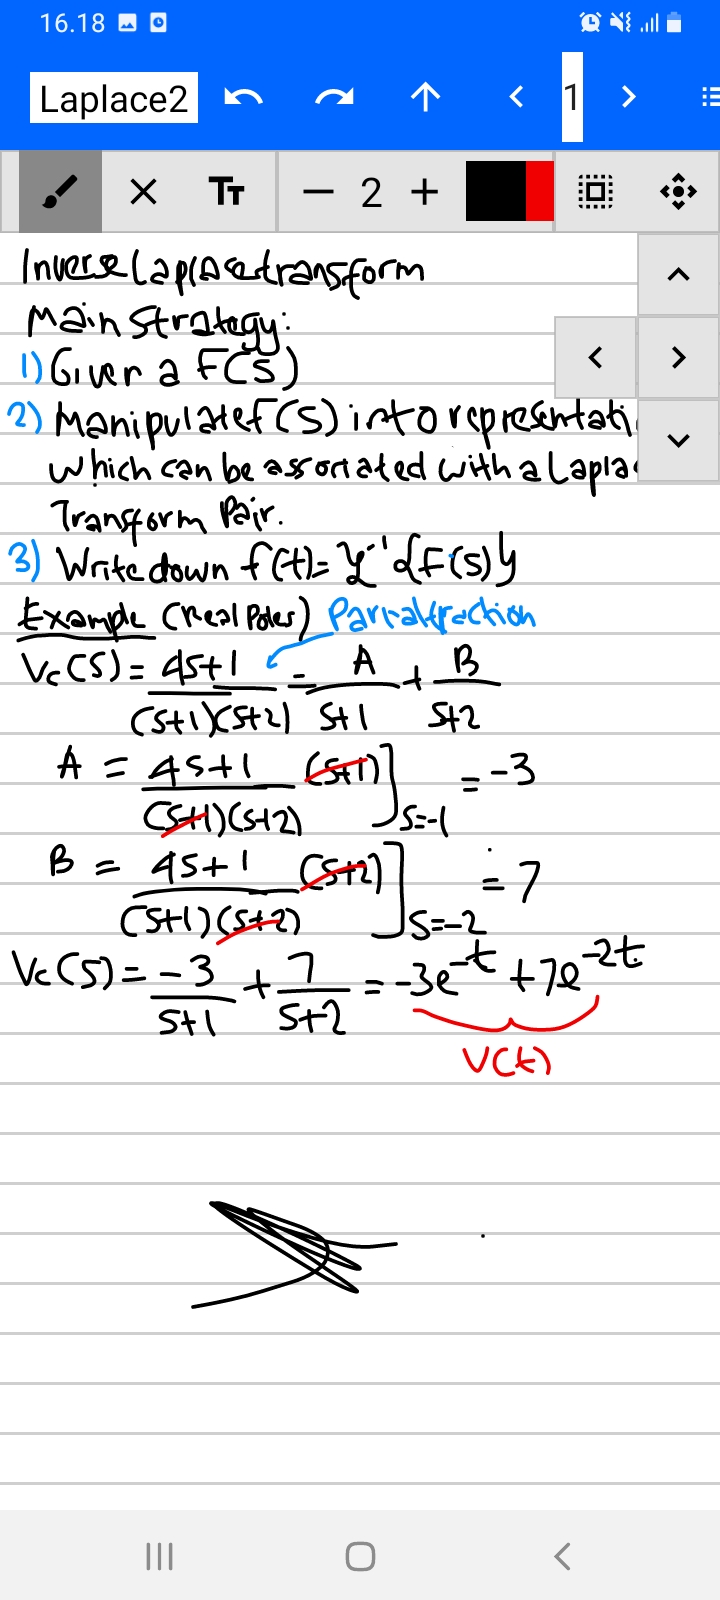 16.18
Laplace2
1
TT
2
Inverse Laplace transform
Main strategy:
1) Given a F(s)
2) Manipulate f(s) into representati
which can be associated with a Lapla
Transform Pair.
3) Write down f(t)= ℒ⁻¹{F(s)}
Example (Real Poles) Partial fraction
Vc(s) = 4s+1 / (s+1)(s+2) = A / s+1 + B / s+2
A = 4s+1 / (s+1)(s+2) (s+1)] s=-1 = -3
B = 4s+1 / (s+1)(s+2) (s+2)] s=-2 = 7
Vc(s) = -3 / s+1 + 7 / s+2 = -3e^-t + 7e^-2t
V(t)